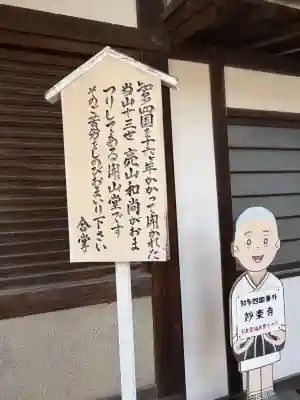 知多四国を十六年かかって開かれた
当山十三せ 亮山和尚がおま
つりしてある開山堂です
そのご苦労をしのびおまいり下さい
合掌
知多四国番外
妙楽寺